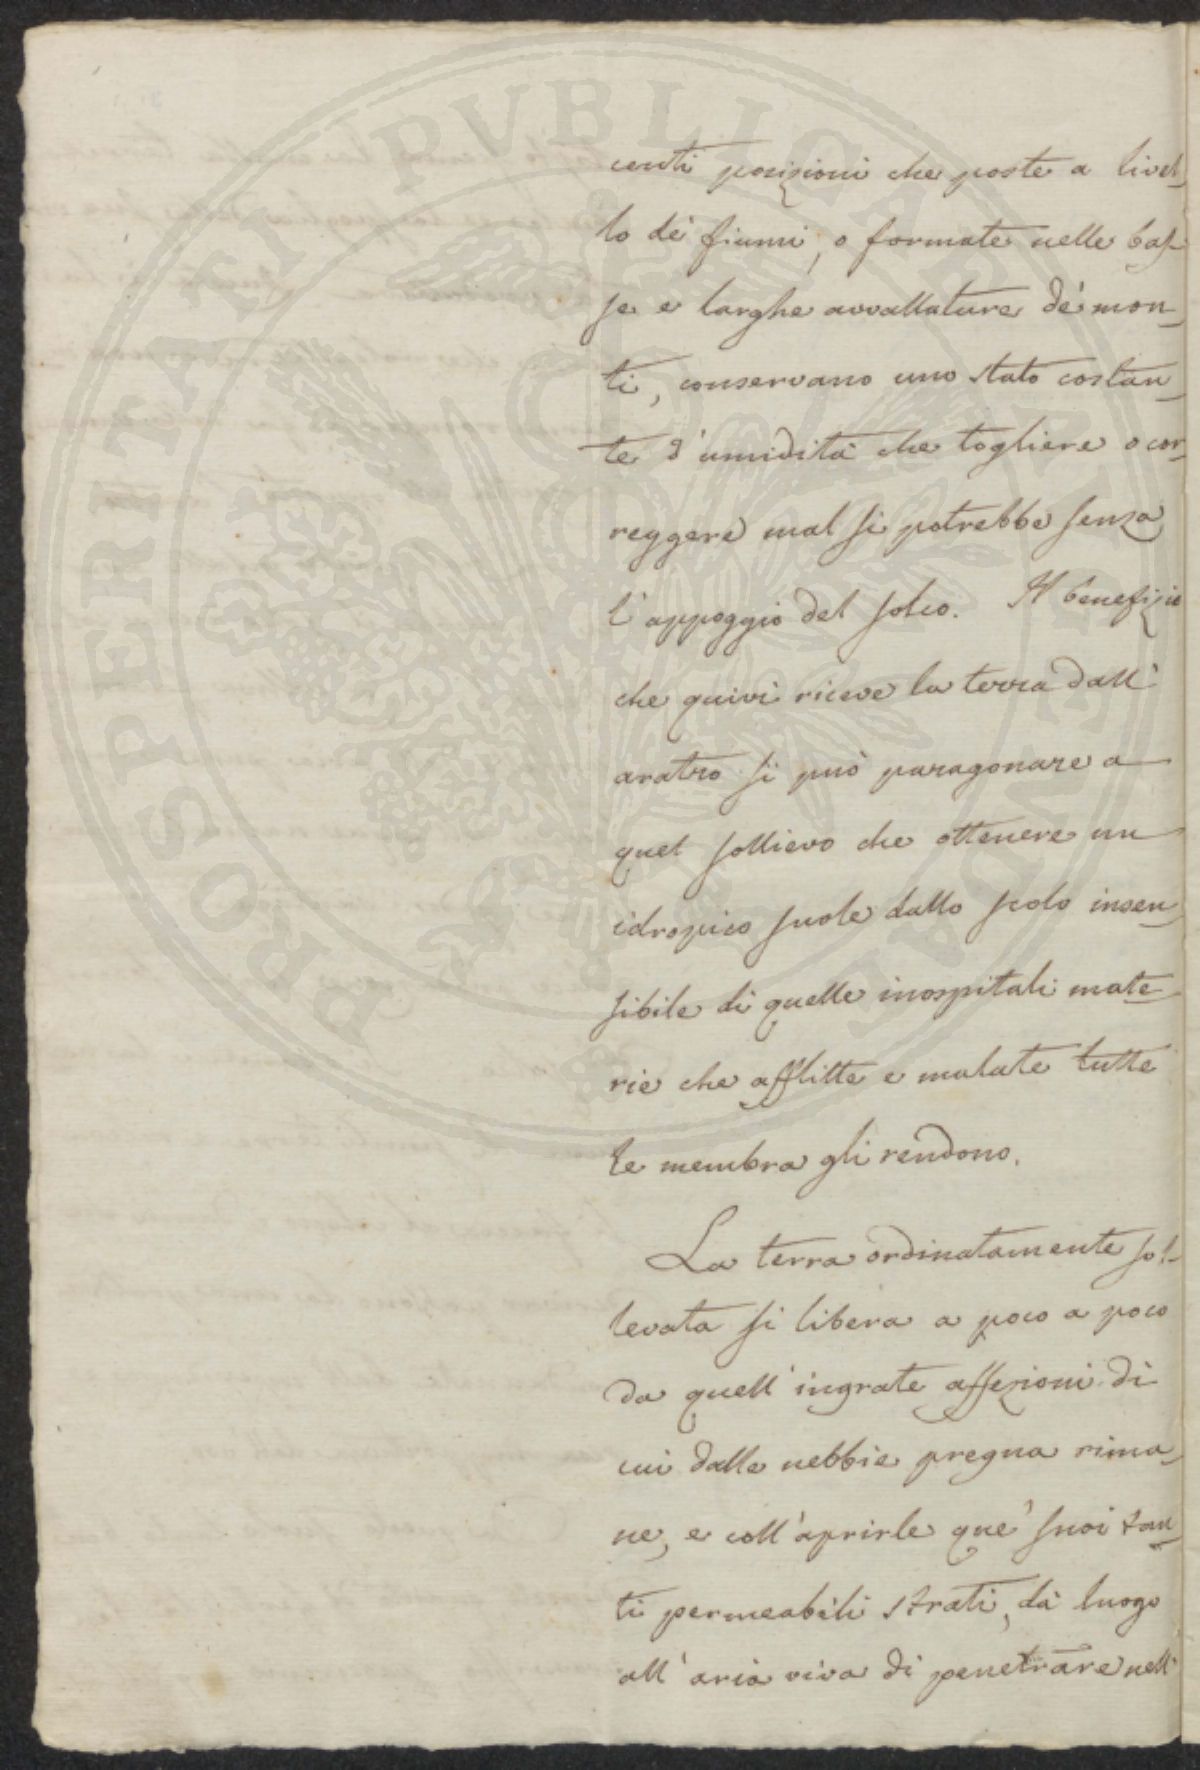 PROSPERITATI PVBLICAE AVGENDAE
centi posizioni che poste a livel-
lo de' fiumi, o formate nelle bas-
se e larghe avvallature de' mon-
ti, conservano uno stato costan-
te d'umidità che togliere o cor-
reggere mal si potrebbe senza
l'appoggio del solco. Il benefizio
che quivi riceve la terra dall'
aratro si può paragonare a
quel sollievo che ottenere un
idropico suole dallo scolo insen-
sibile di quelle inospitali mate-
rie che afflitte e malate tutte
le membra gli rendono.
La terra ordinatamente sol-
levata si libera a poco a poco
da quell'ingrate affezioni di
cui dalle nebbie pregna rima-
ne, e coll'aprirle que' suoi tan-
ti permeabili strati, dà luogo
all'aria viva di penetrare nell'